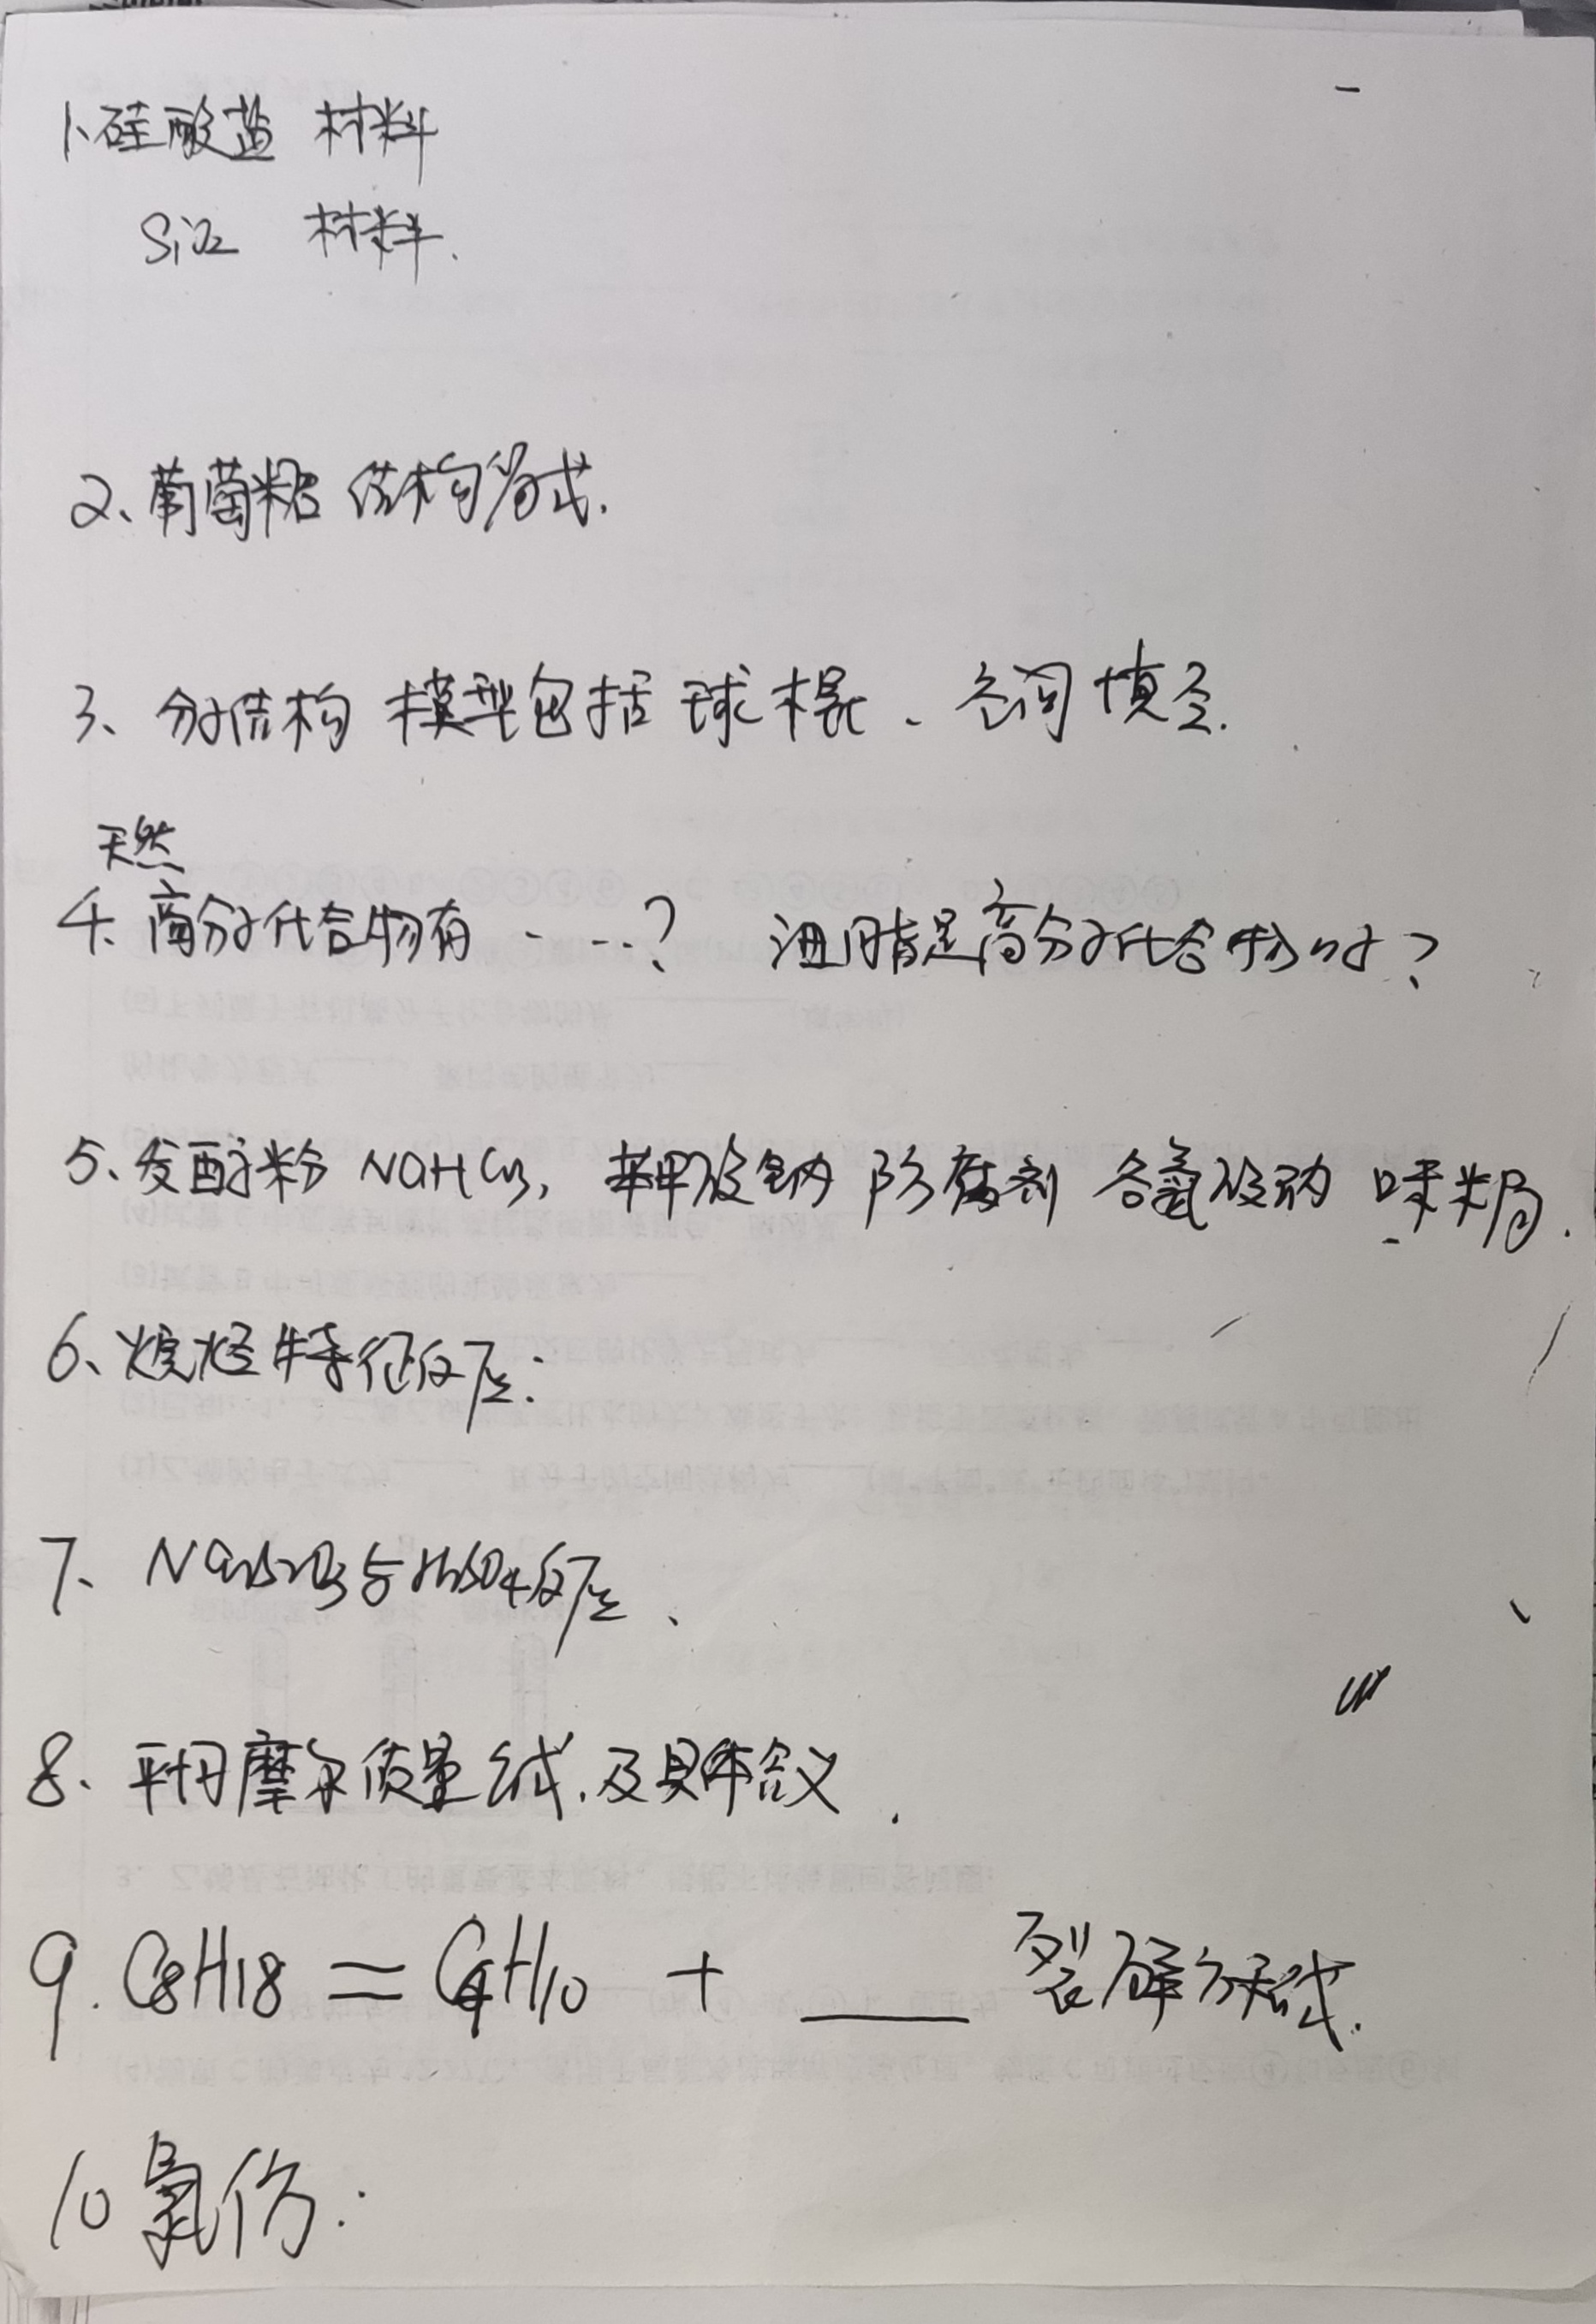 1、硅酸盐 材料
SiO2 材料.
2、葡萄糖 结构简式.
3、分子结构 模型包括 球棍、空间填充.
天然
4、高分子化合物有 ----? 油脂是高分子化合物吗?
5、发酵粉 NaHCO3, 苯甲酸钠 防腐剂 谷氨酸钠 味精.
6、烷烃特征反应:
7、Na2S2O3与H2SO4反应、
8、平均摩尔质量公式.及具体含义.
9. C8H18 = C4H10 + ___ 裂解分子式.
10 氯仿: